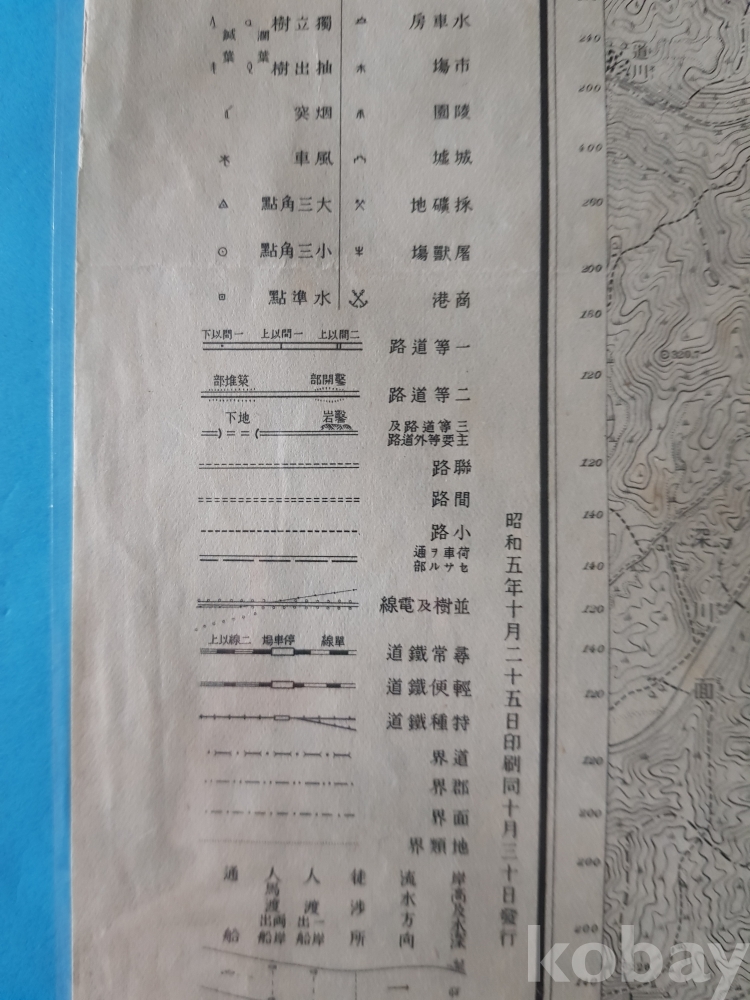 水車房
獨立樹
濶葉
鍼葉
市場
抽出樹
陵園
烟突
城墟
風車
採礦地
大三角點
屠獸場
小三角點
商港
水準點
一等道路
二間以上
一間以上
一間以下
二等道路
鑿開部
築堆部
三等道路及
主要等外道路
鑿岩
地下
聯路
間路
小路
荷車ヲ通
セサル部
並樹及電線
尋常鐵道
單線
停車場
二線以上
輕便鐵道
特種鐵道
道界
郡界
面界
地類界
岸高及水深
流水方向
徒渉所
人渡出船一岸
人馬渡出船兩岸
通船
昭和五年十月二十五日印刷同十月三十日發行
240
200
400
200
200
160
120
120
140
140
120
140
120
120
200
200
200
道川
320.7
深川面
kobay